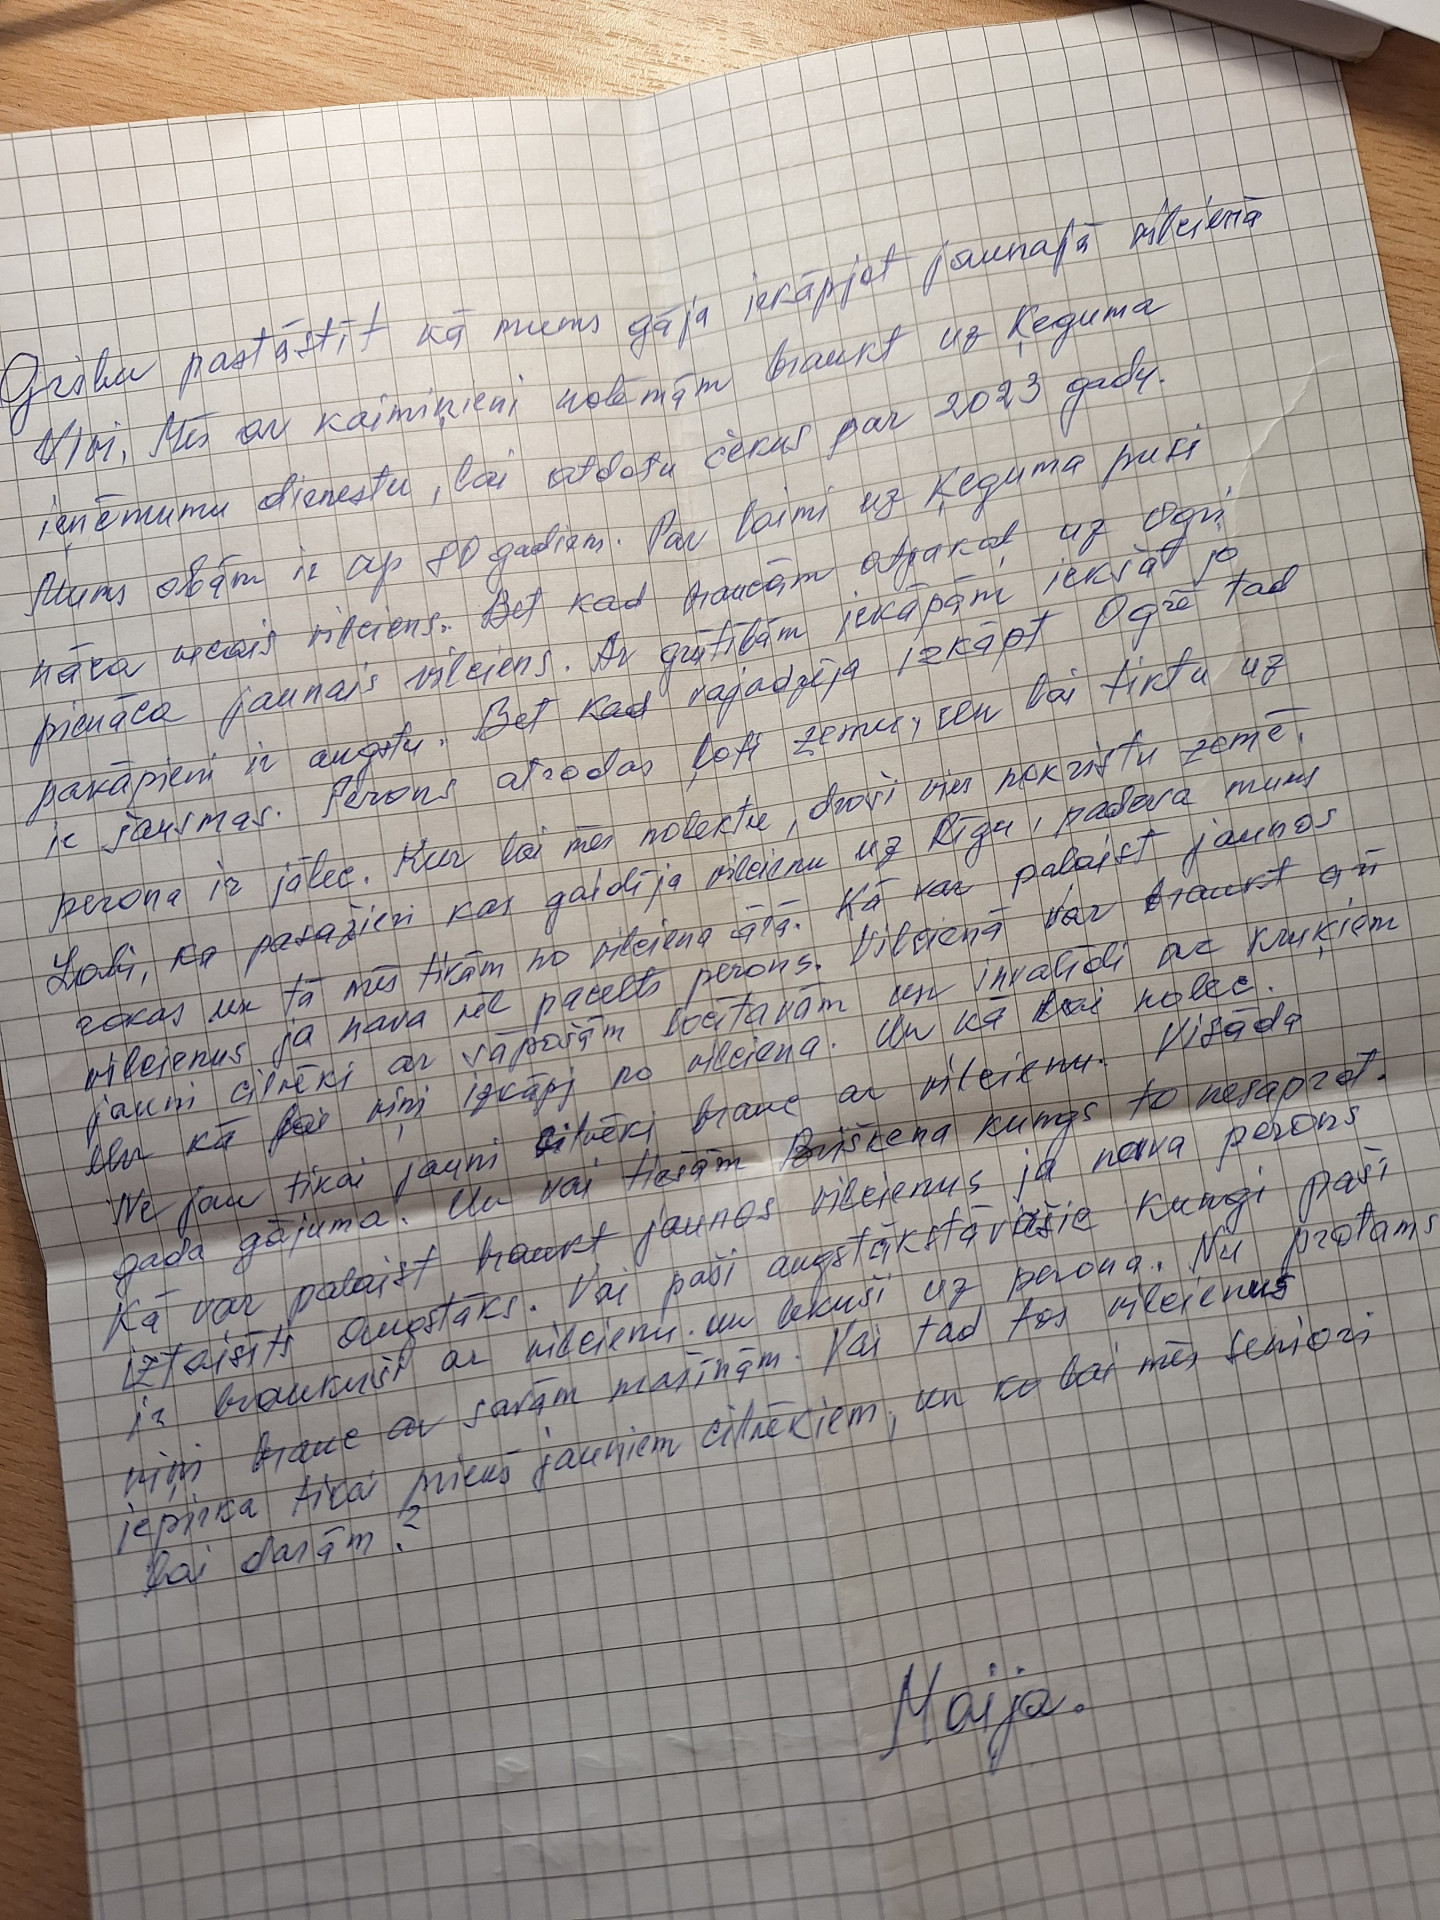 Gribu pastāstīt kā mums gāja iekāpjot jaunajā vilcienā
Vivi. Mēs ar kaimiņieni nolēmām braukt uz Ķeguma
ieņēmumu dienestu, lai atdotu čekus par 2023 gadu.
Mums abām ir ap 80 gadiem. Par laimi uz Ķeguma pusi
nāca vecais vilciens. Bet kad braucām atpakaļ uz Ogri
pienāca jaunais vilciens. Ar grūtībām iekāpām iekšā jo
pakāpieni ir augstu. Bet kad vajadzēja izkāpt Ogrē tad
ir šausmas. Perons atrodas ļoti zemu, un lai tiktu uz
perona ir jālec. Kur lai mēs nolektu, droši vien nokristu zemē.
Labi, ka pasažieri kas gaidīja vilcienu uz Rīgu, padeva mums
rokas un tā mēs tikām no vilciena ārā. Kā var palaist jaunos
vilcienus ja nava vēl pacelts perons. Vilcienā var braukt arī
jauni cilvēki ar sāpošām locītavām un invalīdi ar kruķiem
Un kā lai viņi izkāpj no vilciena. Un kā lai nolec.
Ne jau tikai jauni cilvēki brauc ar vilcienu. Visāda
gada gājuma. Un vai tiešām Briškena kungs to nesaprot.
Kā var palaist braukt jaunos vilcienus ja nava perons
iztaisīts augstāks. Vai paši augstākstāvošie kungi paši
ir braukuši ar vilcienu un lekuši uz perona. Nu protams
viņi brauc ar savām mašīnām. Vai tad tos vilcienus
iepirka tikai priekš jauniem cilvēkiem, un ko lai mēs seniori
lai darām?
Maija.